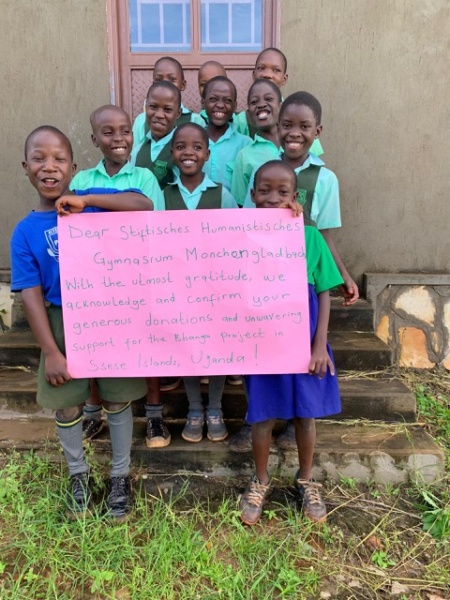 Dear Stiftisches Humanistisches
Gymnasium Monchengladbach
With the utmost gratitude, we
acknowledge and confirm your
generous donations and unwavering
support for the Bbanga project in
Ssese Islands, Uganda!